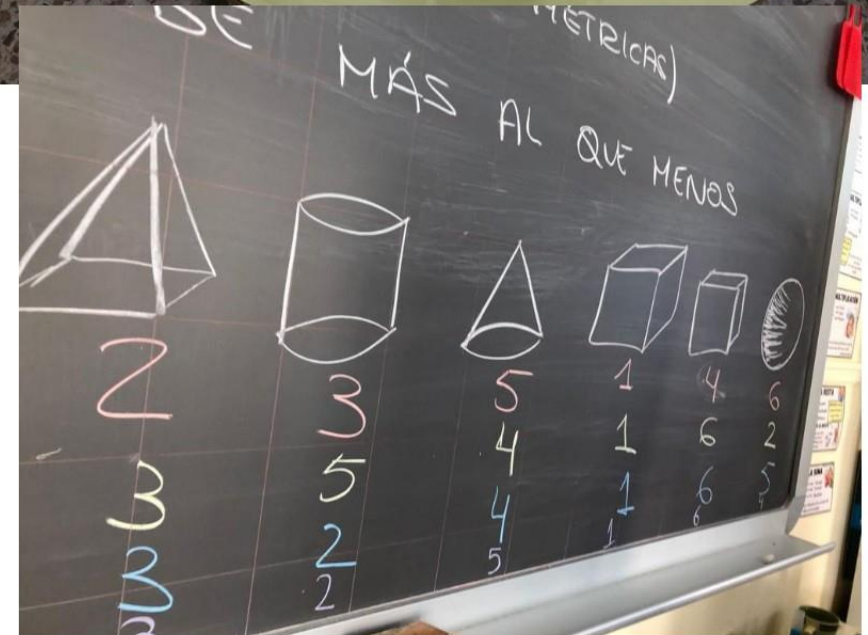 DE METRICAS)
MÁS AL QUE MENOS
2 3 5 1 4 6
3 5 4 1 6 2
3 2 4 1 6 5
2 5 1 6